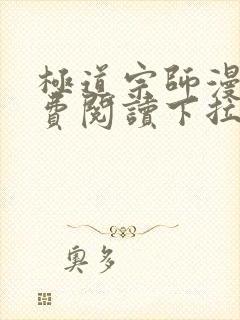 極道宗師漫
費閱讀下拉
奧多